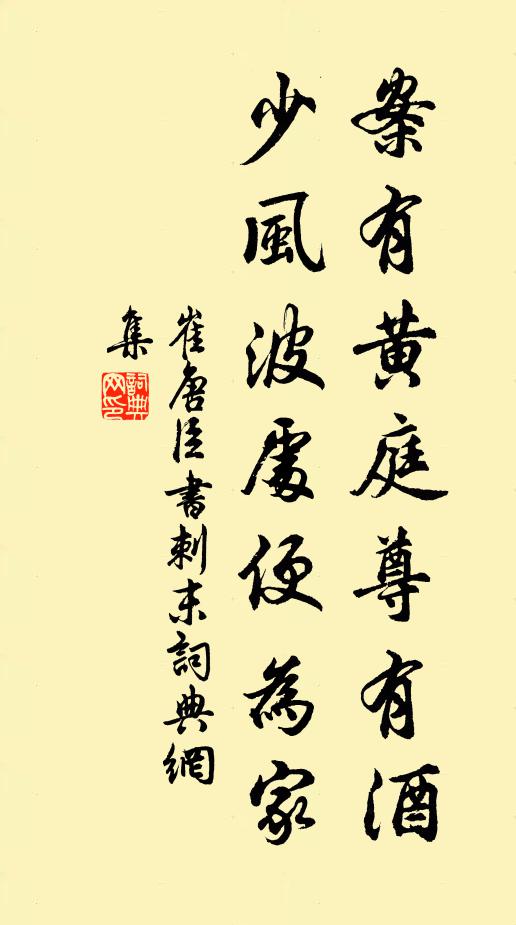 案有黄庭尊有酒
少風波處便為家
崔唐臣書刺末詞典網
集
詞典网印